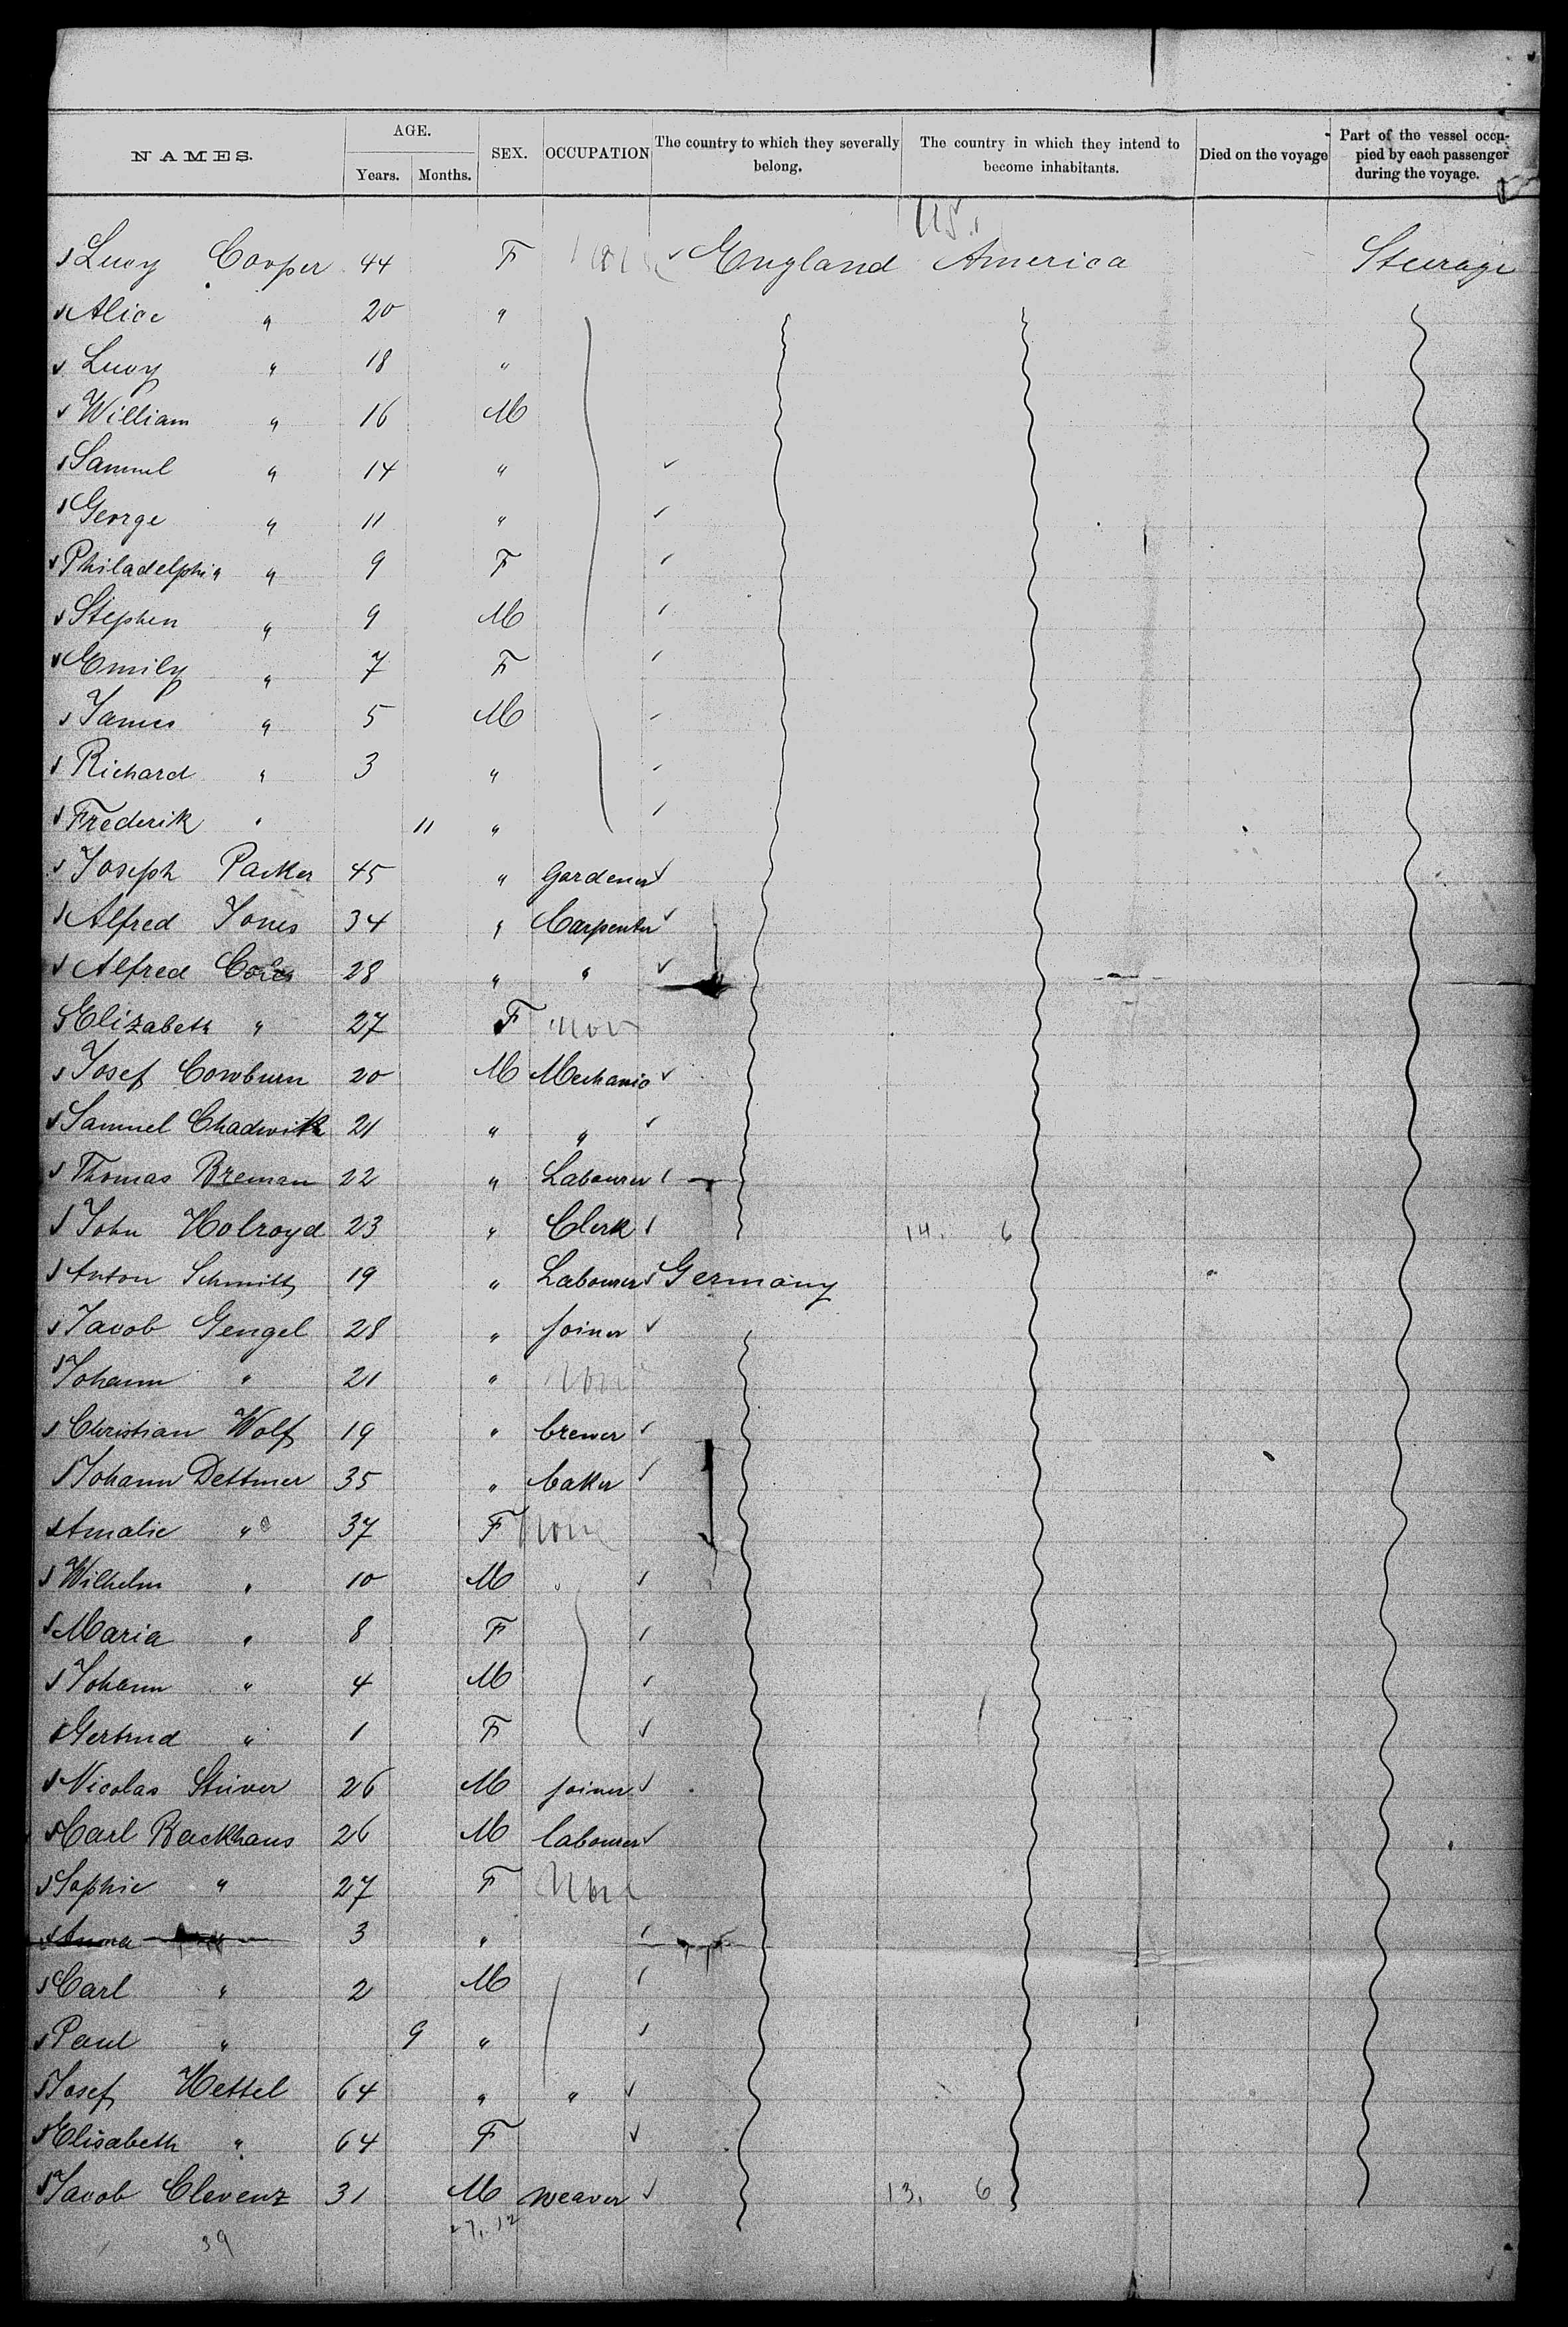 NAMES. AGE. Years. Months. SEX. OCCUPATION The country to which they severally belong. The country in which they intend to become inhabitants. Died on the voyage Part of the vessel occupied by each passenger during the voyage.
U.S.
Lucy Cooper 44 F None England America Steerage
Alice " 20 "
Lucy " 18 "
William " 16 M
Samuel " 14 "
George " 11 "
Philadelphia " 9 F
Stephen " 9 M
Emily " 7 F
James " 5 M
Richard " 3 "
Frederik " 11 "
Joseph Parker 45 " Gardener
Alfred Jones 34 " Carpenter
Alfred 28 " "
Elizabeth " 27 F none
Josef Cowburn 20 M Mechanic
Samuel Chadwick 21 " "
Thomas Breman 22 " Labourer
John Holroyd 23 " Clerk 14. 6
Anton Schmitt 19 " Labourer Germany
Jacob Gengel 28 " joiner
Johann " 21 " None
Christian Wolf 19 " brewer
Johann Dettmer 35 " baker
Amalie " 37 F none
Wilhelm " 10 M "
Maria " 8 F
Johann " 4 M
Gertrud " 1 F
Nicolas Stüver 26 M joiner
Carl Backhaus 26 M labourer
Sophie " 27 F None
Anna 3 "
Carl " 2 M
Paul " 9 "
Josef Hettel 64 " "
Elisabeth " 64 F
Jacob Clevenz 31 M weaver 13. 6
39 27. 12